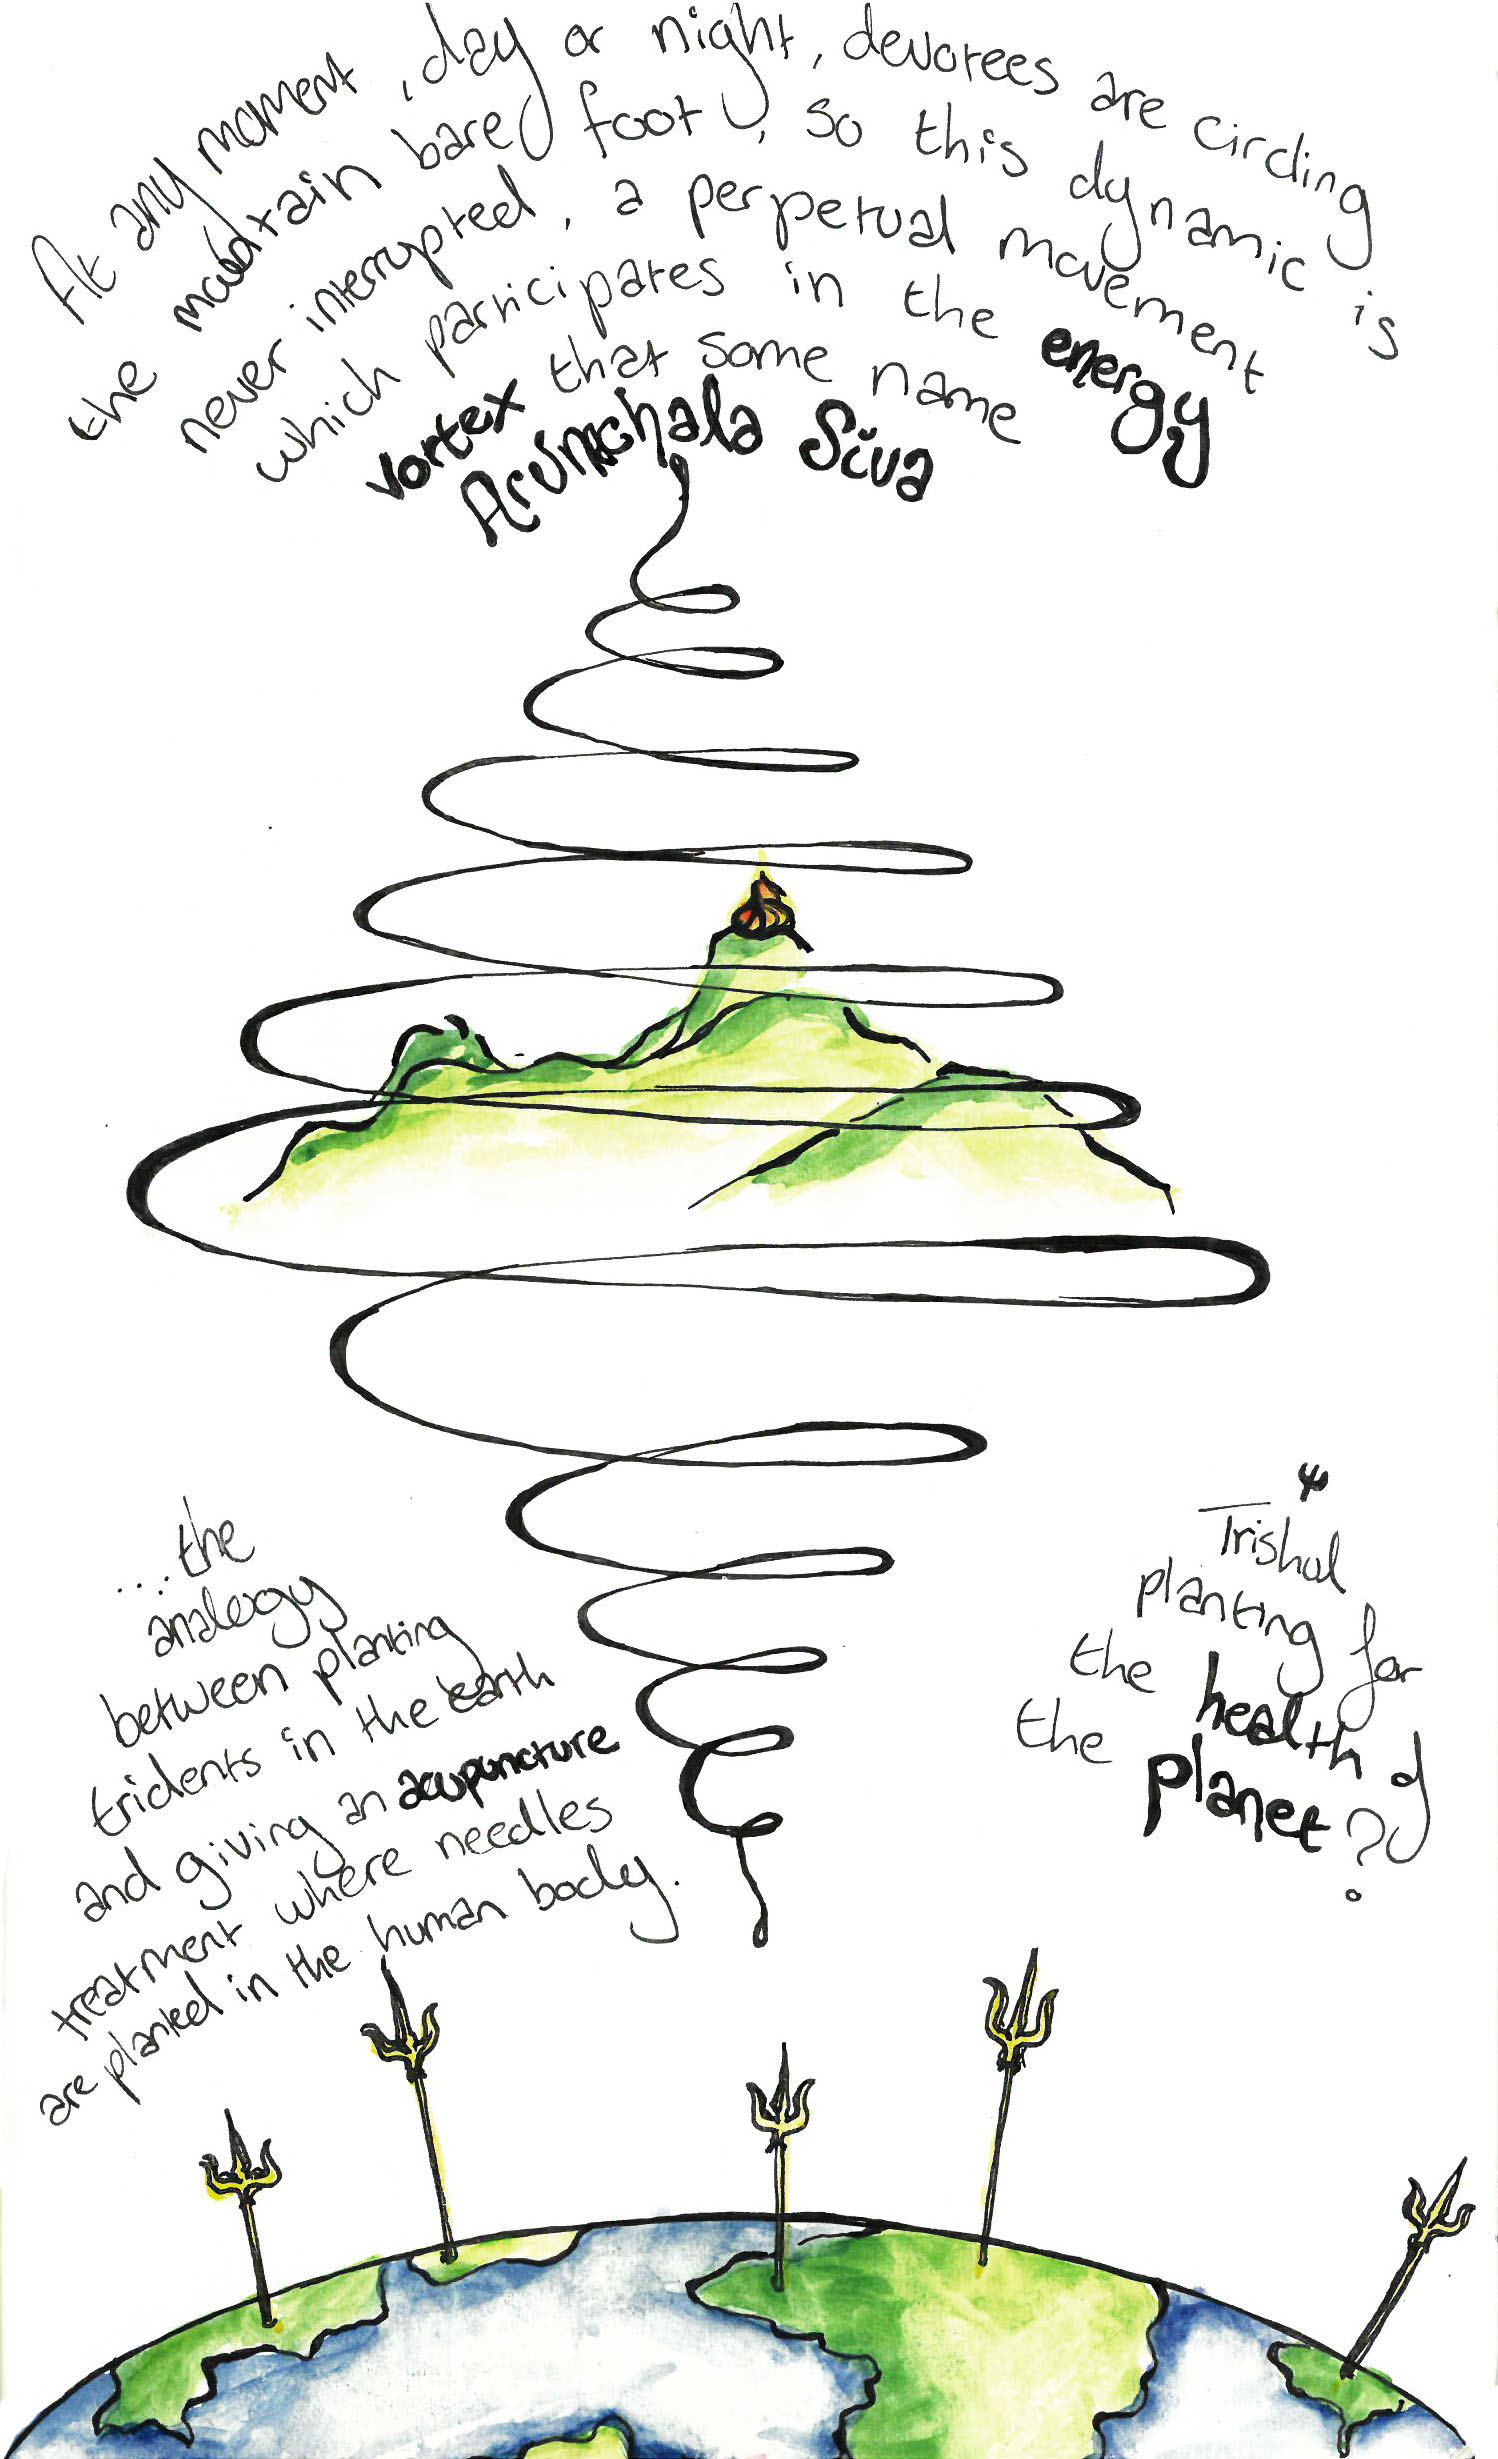 At any moment, day or night, devotees are circling
the mountain bare foot, so this dynamic is
never interrupted, a perpetual movement
which participates in the energy
vortex that some name
Arunachala Siva
... the
analogy
between planting
tridents in the earth
and giving an acupuncture
treatment where needles
are planted in the human body.
Trishul
planting for
the health of
the planet?